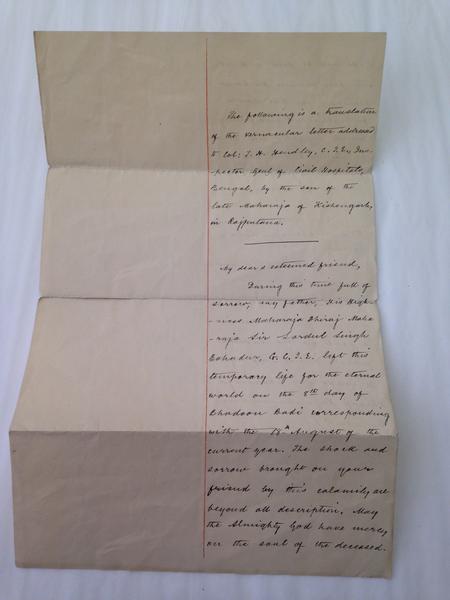 The following is a translation
of the vernacular letter addressed
to Col: T. H. Hendley, C.I.E, Ins-
pector Genl of Civil Hospitals,
Bengal, by the son of the
late Maharaja of Kishengarh,
in Rajputana.
My dear & esteemed friend,
During this time full of
sorrow, my father, His High-
-ness Maharaja Dhiraj Maha
-raja Sir Sardul Singh
Bahadur, G.C.I.E. left this
temporary life for the eternal
world on the 8th day of
Bhadoon Badi corresponding
with the August of the
current year. The shock and
sorrow brought on your
friend by this calamity are
beyond all description. May
the Almighty God have mercy
on the soul of the deceased.